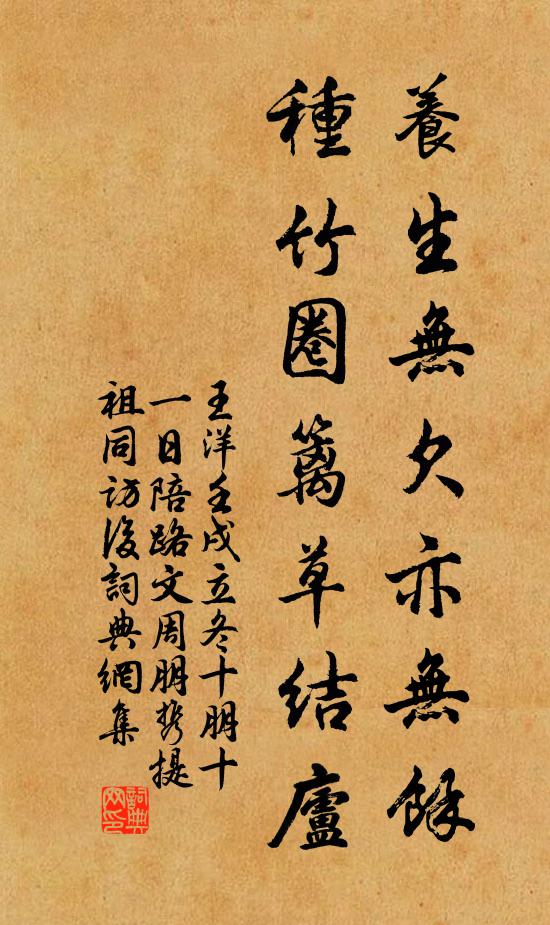 養生無欠亦無餘
種竹圈籬草結廬
王洋壬戌立冬十朋十
一日陪路文周朋攜提
祖同訪後詞典網集
詞典網印